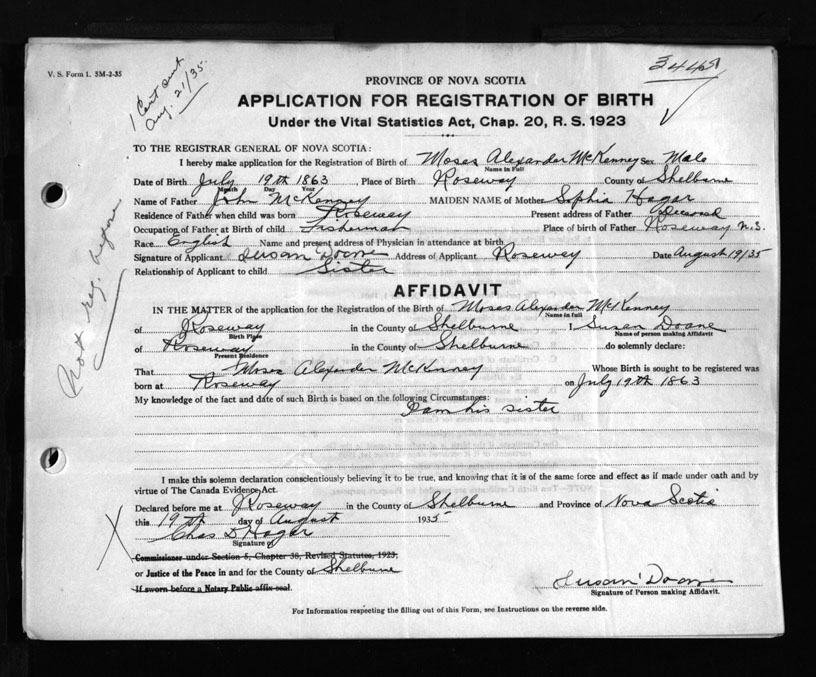 V. S. Form 1. 5M-2-35
1 Cert sent
Aug. 21/35.
PROVINCE OF NOVA SCOTIA
APPLICATION FOR REGISTRATION OF BIRTH
Under the Vital Statistics Act, Chap. 20, R. S. 1923
TO THE REGISTRAR GENERAL OF NOVA SCOTIA:
I hereby make application for the Registration of Birth of Moses Alexander McKenney Sex Male
Name in Full
Date of Birth July 19th 1863 Place of Birth Roseway County of Shelburne
Month Day Year
Name of Father John McKenney MAIDEN NAME of Mother Sophia Hagar
Residence of Father when child was born Roseway Present address of Father Deceased
Occupation of Father at Birth of child Fisherman Place of birth of Father Roseway N.S.
Race English Name and present address of Physician in attendance at birth
Signature of Applicant Susan Doane Address of Applicant Roseway Date August 19/35
Relationship of Applicant to child Sister
Not reg. before
AFFIDAVIT
IN THE MATTER of the application for the Registration of the Birth of Moses Alexander McKenney
Name in full
of Roseway in the County of Shelburne I Susan Doane
Birth Place Name of person making Affidavit
of Roseway in the County of Shelburne do solemnly declare:
Present Residence
That Moses Alexander McKenney Whose Birth is sought to be registered was
born at Roseway on July 19th 1863
My knowledge of the fact and date of such Birth is based on the following Circumstances:
I am his sister
I make this solemn declaration conscientiously believing it to be true, and knowing that it is of the same force and effect as if made under oath and by
virtue of The Canada Evidence Act.
Declared before me at Roseway in the County of Shelburne and Province of Nova Scotia
this 19th day of August 1935
Chas D Hagar
Signature of
Commissioner under Section 5, Chapter 38, Revised Statutes, 1923,
or Justice of the Peace in and for the County of Shelburne
If sworn before a Notary Public affix seal.
Susan Doane
Signature of Person making Affidavit.
For Information respecting the filling out of this Form, see Instructions on the reverse side.